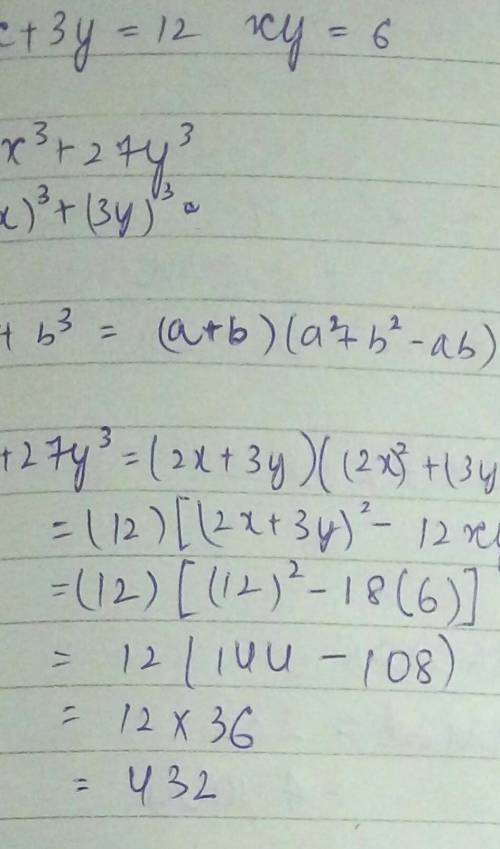 +3y = 12 xy = 6
x³ + 27y³
x)³ + (3y)³ =
+ b³ = (a+b)(a²+b²-ab)
+27y³ = (2x+3y)((2x)² + (3y
= (12)[(2x+3y)² - 12x
= (12)[(12)² - 18(6)]
= 12(144 - 108)
= 12 × 36
= 432